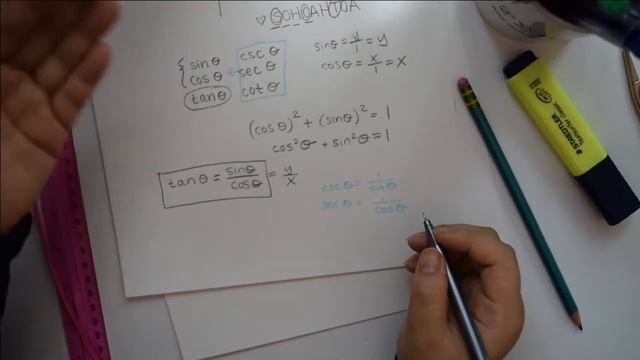 ♡ SOHCAHTOA
sinθ
cosθ
tanθ
csc θ
sec θ
cot θ
sinθ = y/1 = y
cosθ = x/1 = x
(cosθ)² + (sinθ)² = 1
cos²θ + sin²θ = 1
tanθ = sinθ/cosθ = y/x
cscθ = 1/sinθ
secθ = 1/cosθ
STAEDTLER
Textsurfer classic